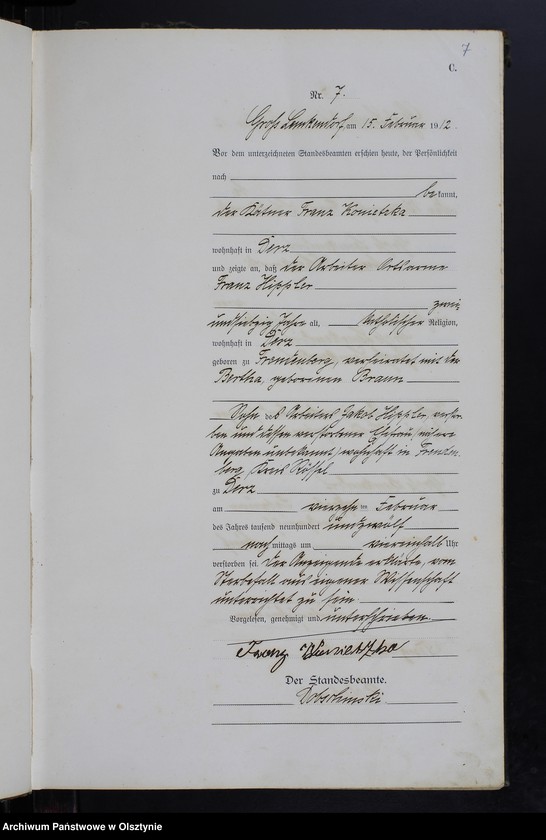 7
C.
Nr. 7.
Groß Lemkendorf, am 15. Februar 1912.
Vor dem unterzeichneten Standesbeamten erschien heute, der Persönlichkeit
nach
bekannt,
der Kätner Franz Konietzka
wohnhaft in Derz
und zeigte an, daß der Arbeiter Ortsarme
Franz Hippler
zwei
undsiebzig Jahre alt, katholischer Religion,
wohnhaft in Derz
geboren zu Fremdenberg, verheiratet mit der
Bertha, geborenen Braun
Sohn des Arbeiters Jakob Hippler, verstor-
ben und dessen verstorbener Ehefrau, weitere
Angaben unbekannt, wohnhaft in
Kreis Rössel
zu Derz
am vierzehn Februar
des Jahres tausend neunhundert undzwölf
nachmittags um viereinhalb Uhr
verstorben sei. Der Anzeigende erklärte, vom
Sterbefall aus eigener Wissenschaft
unterrichtet zu sein.
Vorgelesen, genehmigt und unterschrieben
Franz Konietzka
Der Standesbeamte.
Archiwum Państwowe w Olsztynie